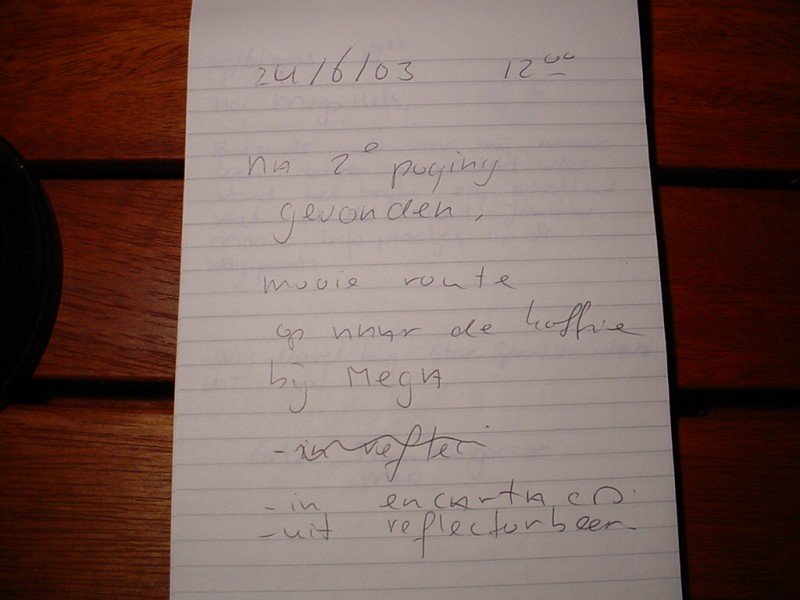 24/6/03 12⁰⁰
na 2e poging
gevonden,
mooie route
op naar de koffie
bij Mega
- in reflec
- in encarta CD.
- uit reflectorbeer